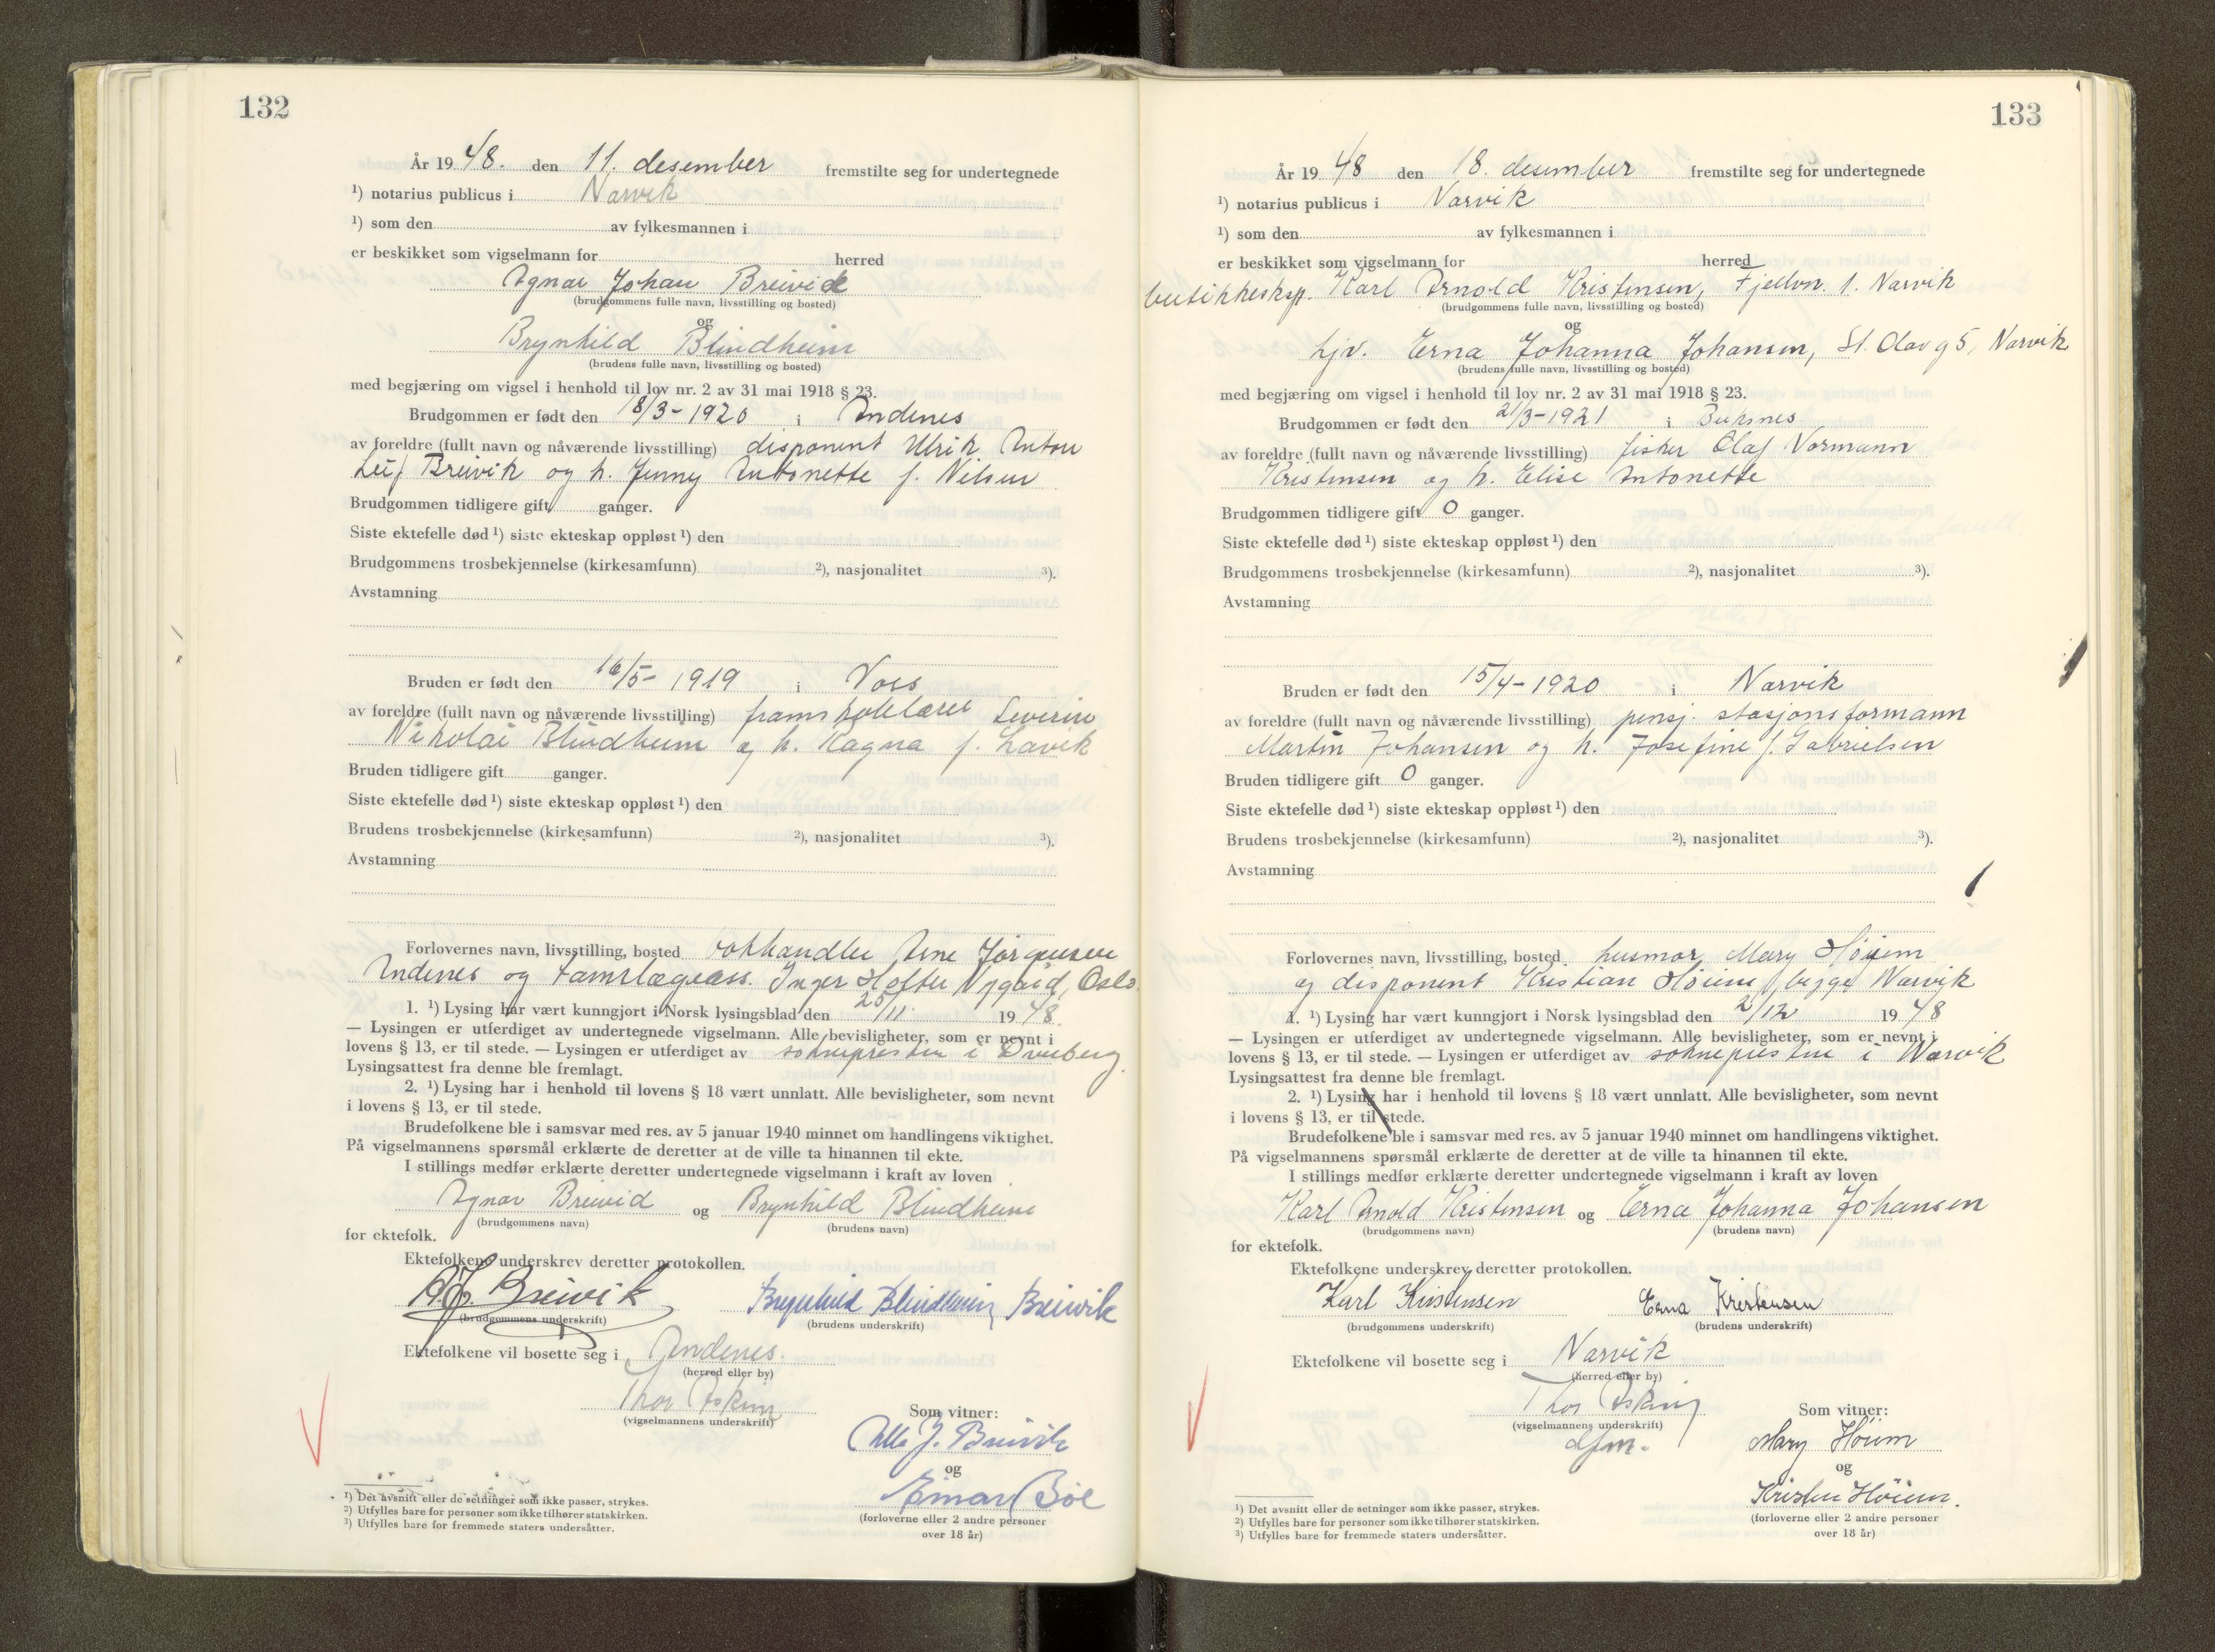 132
År 19 48. den 11. desember fremstilte seg for undertegnede
¹) notarius publicus i Narvik
¹) som den av fylkesmannen i
er beskikket som vigselmann for herred
Agnar Johan Breivik
(brudgommens fulle navn, livsstilling og bosted)
og
Brynhild Blindheim
(brudens fulle navn, livsstilling og bosted)
med begjæring om vigsel i henhold til lov nr. 2 av 31 mai 1918 § 23.
Brudgommen er født den 18/3-1920 i Andenes
av foreldre (fullt navn og nåværende livsstilling) disponent Ulrik Anton
Leif Breivik og h. Jenny Antonette f. Nilsen
Brudgommen tidligere gift ganger.
Siste ektefelle død ¹) siste ekteskap oppløst ¹) den
Brudgommens trosbekjennelse (kirkesamfunn) ²), nasjonalitet ³).
Avstamning
Bruden er født den 16/5-1919 i Voss
av foreldre (fullt navn og nåværende livsstilling) framskolelærer Severin
Nikolai Blindheim og h. Ragna f. Lavik
Bruden tidligere gift ganger.
Siste ektefelle død ¹) siste ekteskap oppløst ¹) den
Brudens trosbekjennelse (kirkesamfunn) ²), nasjonalitet ³).
Avstamning
Forlovernes navn, livsstilling, bosted bokhandler Arne Jørgensen
Andenes og Inger Hofter Nygård, Oslo
1. ¹) Lysing har vært kunngjort i Norsk lysingsblad den 25/11 19 48.
— Lysingen er utferdiget av undertegnede vigselmann. Alle bevisligheter, som er nevnt i
lovens § 13, er til stede. — Lysingen er utferdiget av soknepresten i Dverberg.
Lysingsattest fra denne ble fremlagt.
2. ¹) Lysing har i henhold til lovens § 18 vært unnlatt. Alle bevisligheter, som nevnt
i lovens § 13, er til stede.
Brudefolkene ble i samsvar med res. av 5 januar 1940 minnet om handlingens viktighet.
På vigselmannens spørsmål erklærte de deretter at de ville ta hinannen til ekte.
I stillings medfør erklærte deretter undertegnede vigselmann i kraft av loven
Agnar Breivid og Brynhild Blindheim
(brudgommens navn) (brudens navn)
for ektefolk.
Ektefolkene underskrev deretter protokollen.
A.J. Breivik Brynhild Blindheim Breivik
(brudgommens underskrift) (brudens underskrift)
Ektefolkene vil bosette seg i Andenes.
(herred eller by)
Thor Askim
(vigselmannens underskrift)
Som vitner:
J. Breivik
og
Einar Bøe
(forloverne eller 2 andre personer
over 18 år)
¹) Det avsnitt eller de setninger som ikke passer, strykes.
²) Utfylles bare for personer som ikke tilhører statskirken.
³) Utfylles bare for fremmede staters undersåtter.
133
År 19 48 den 18. desember fremstilte seg for undertegnede
¹) notarius publicus i Narvik
¹) som den av fylkesmannen i
er beskikket som vigselmann for herred
butikkeksp. Karl Arnold Kristensen, Fjellvn. 1. Narvik
(brudgommens fulle navn, livsstilling og bosted)
og
hjv. Erna Johanna Johansen, St. Olav g 5, Narvik
(brudens fulle navn, livsstilling og bosted)
med begjæring om vigsel i henhold til lov nr. 2 av 31 mai 1918 § 23.
Brudgommen er født den 21/3-1921 i Buksnes
av foreldre (fullt navn og nåværende livsstilling) fisker Olaf Normann
Kristensen og h. Elise Antonette
Brudgommen tidligere gift 0 ganger.
Siste ektefelle død ¹) siste ekteskap oppløst ¹) den
Brudgommens trosbekjennelse (kirkesamfunn) ²), nasjonalitet ³).
Avstamning
Bruden er født den 15/4-1920 i Narvik
av foreldre (fullt navn og nåværende livsstilling) pensj. stasjonsformann
Martin Johansen og h. Josefine f. Gabrielsen
Bruden tidligere gift 0 ganger.
Siste ektefelle død ¹) siste ekteskap oppløst ¹) den
Brudens trosbekjennelse (kirkesamfunn) ²), nasjonalitet ³).
Avstamning
Forlovernes navn, livsstilling, bosted husmor Mary Høiem
og disponent Kristian Høiem, begge Narvik
1. ¹) Lysing har vært kunngjort i Norsk lysingsblad den 2/12 19 48
— Lysingen er utferdiget av undertegnede vigselmann. Alle bevisligheter, som er nevnt i
lovens § 13, er til stede. — Lysingen er utferdiget av soknepresten i Narvik
Lysingsattest fra denne ble fremlagt.
2. ¹) Lysing har i henhold til lovens § 18 vært unnlatt. Alle bevisligheter, som nevnt
i lovens § 13, er til stede.
Brudefolkene ble i samsvar med res. av 5 januar 1940 minnet om handlingens viktighet.
På vigselmannens spørsmål erklærte de deretter at de ville ta hinannen til ekte.
I stillings medfør erklærte deretter undertegnede vigselmann i kraft av loven
Karl Arnold Kristensen og Erna Johanna Johansen
(brudgommens navn) (brudens navn)
for ektefolk.
Ektefolkene underskrev deretter protokollen.
Karl Kristensen Erna Kristensen
(brudgommens underskrift) (brudens underskrift)
Ektefolkene vil bosette seg i Narvik
(herred eller by)
Thor Askim
(vigselmannens underskrift)
dfm.
Som vitner:
Mary Høiem
og
Kristian Høiem.
(forloverne eller 2 andre personer
over 18 år)
¹) Det avsnitt eller de setninger som ikke passer, strykes.
²) Utfylles bare for personer som ikke tilhører statskirken.
³) Utfylles bare for fremmede staters undersåtter.